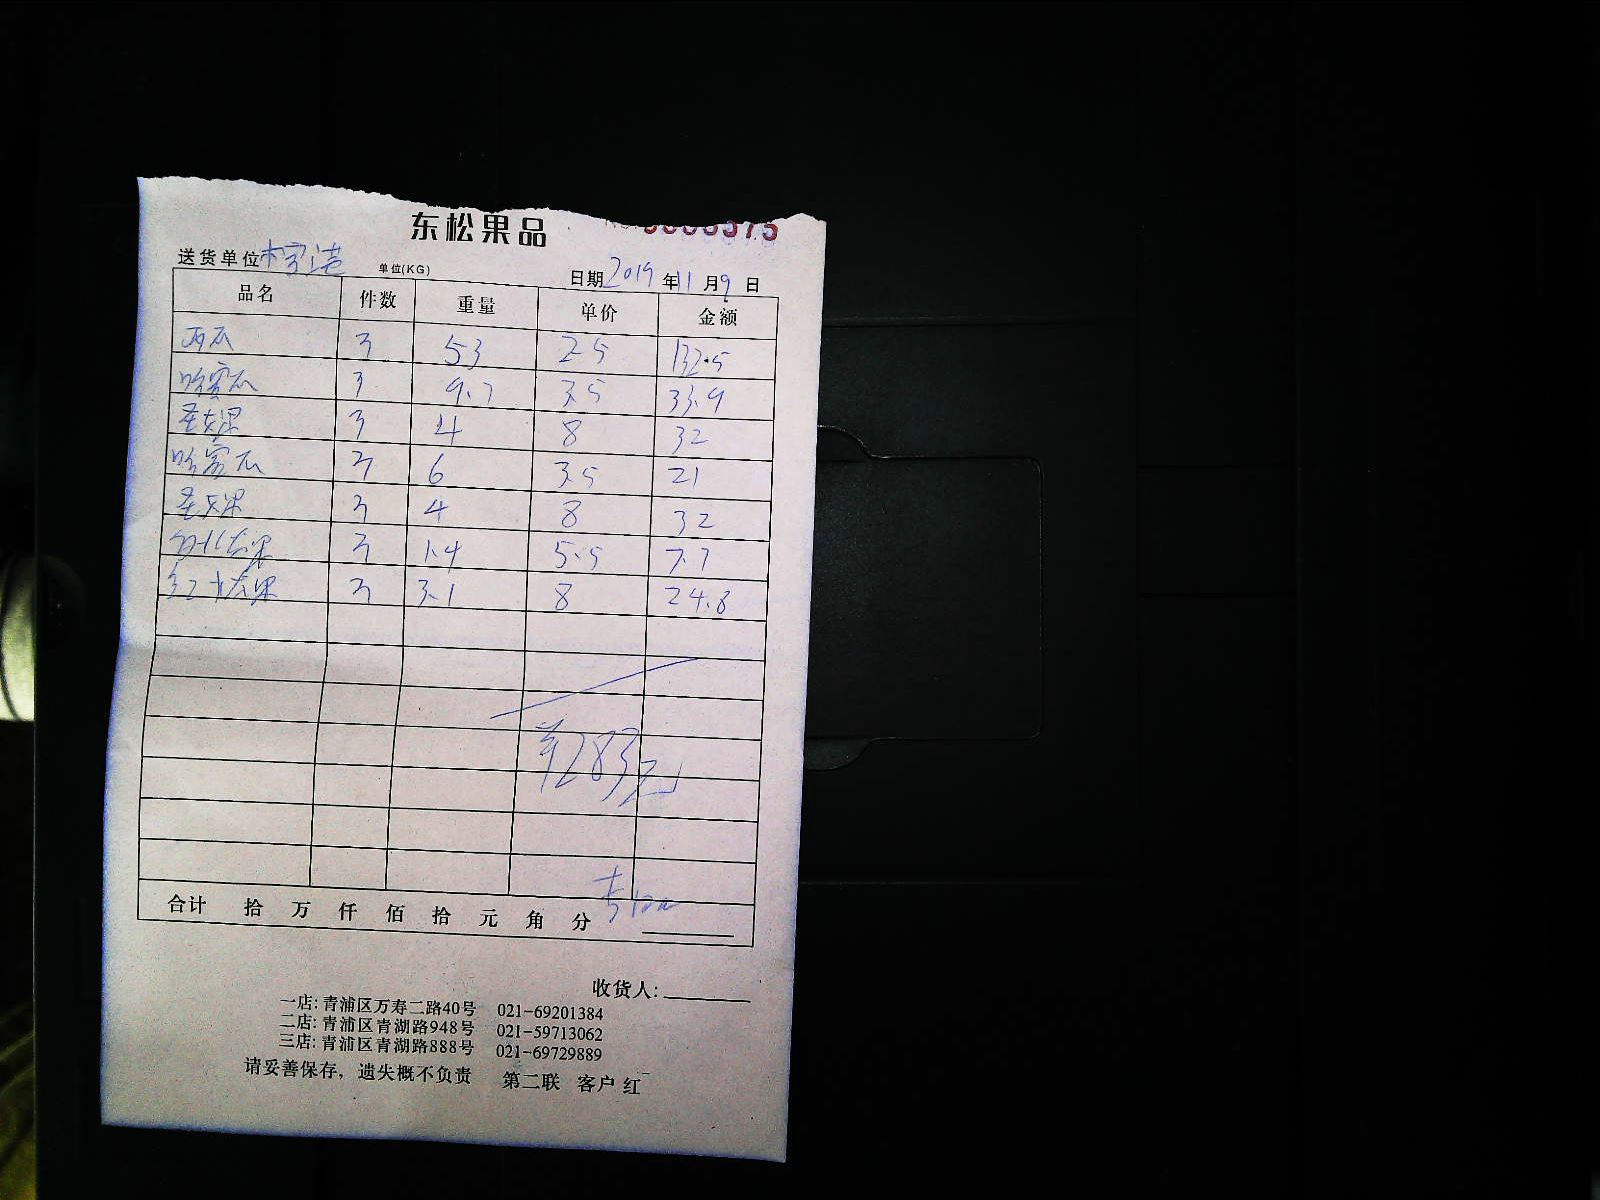 东松果品
送货单位 单位(KG) 日期2019年11月9日
品名 件数 重量 单价 金额
西瓜 3 53 2.5 132.5
哈密瓜 3 9.7 3.5 33.9
圣女果 3 4 8 32
哈密瓜 3 6 3.5 21
圣女果 3 4 8 32
3 1.4 5.5 7.7
红火龙果 3 3.1 8 24.8
¥283元
合计 拾 万 仟 佰 拾 元 角 分
收货人:
一店: 青浦区万寿二路40号 021-69201384
二店: 青浦区青湖路948号 021-59713062
三店: 青浦区青湖路888号 021-69729889
请妥善保存, 遗失概不负责 第二联 客户 红